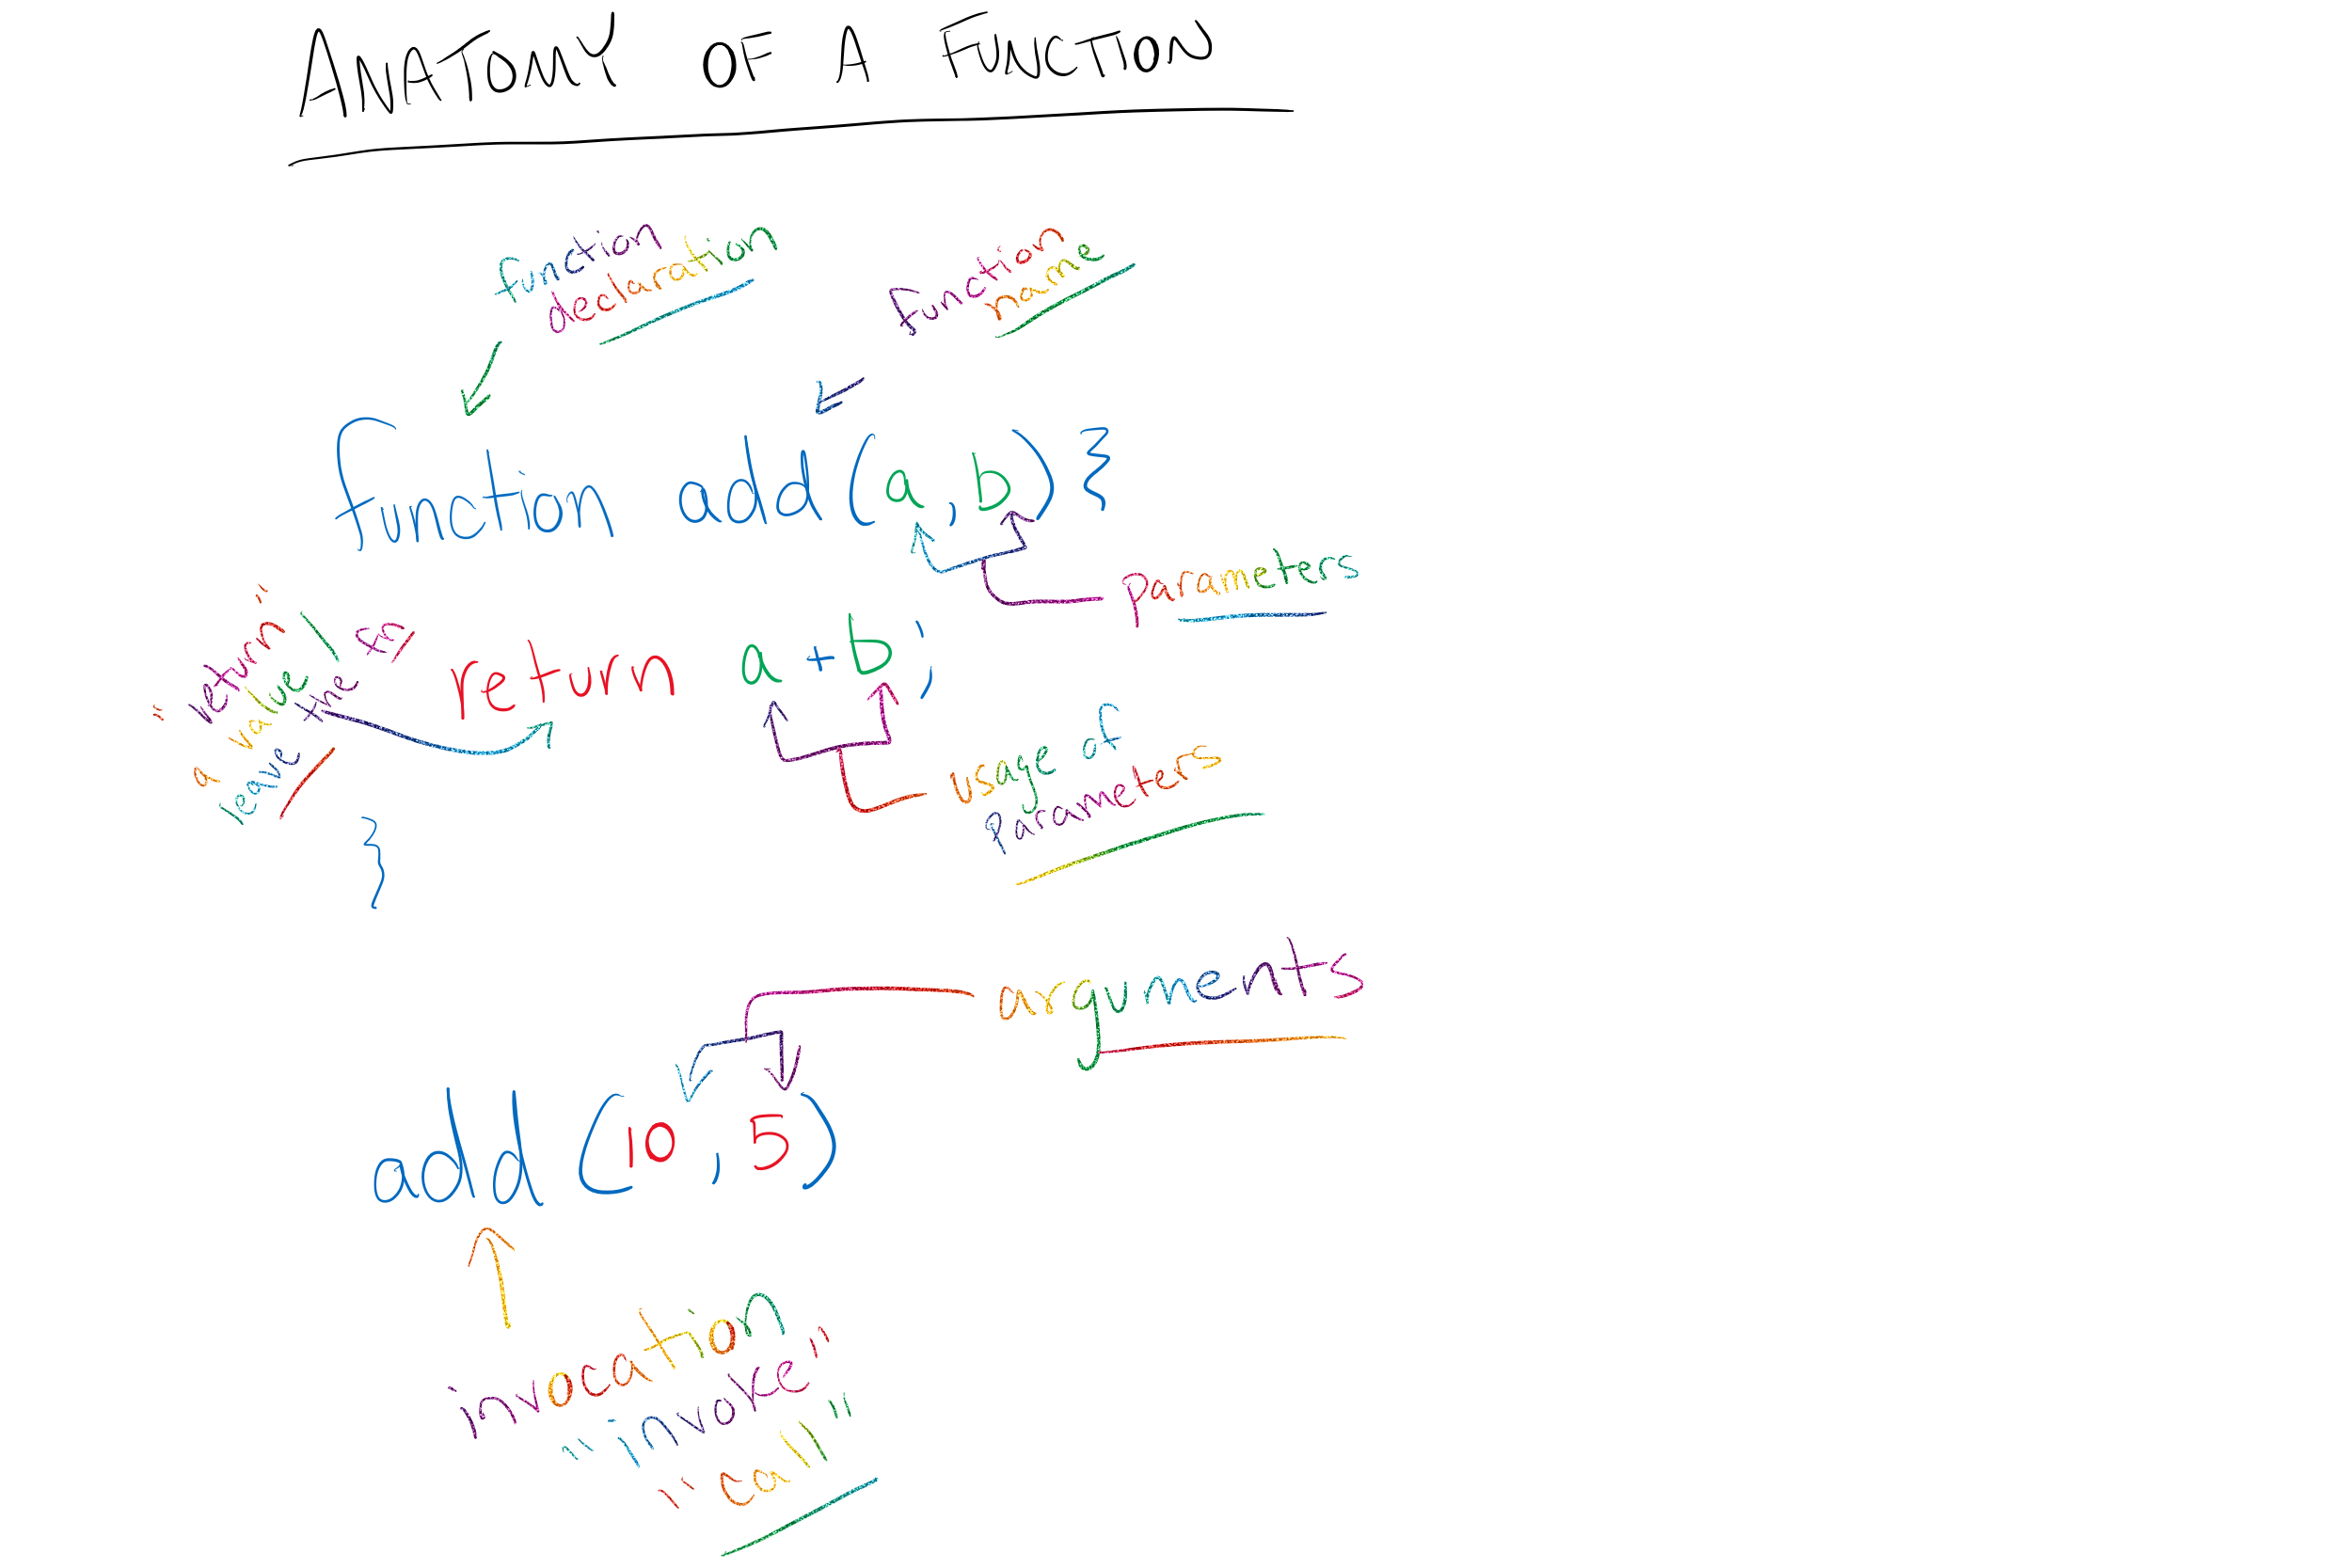 ANATOMY OF A FUNCTION
function
declaration
function
name
function add(a,b) {
parameters
"return"
a value /
leave the fn
return a+b;
usage of
parameters
}
arguments
add (10,5)
invocation
"invoke"
"call"